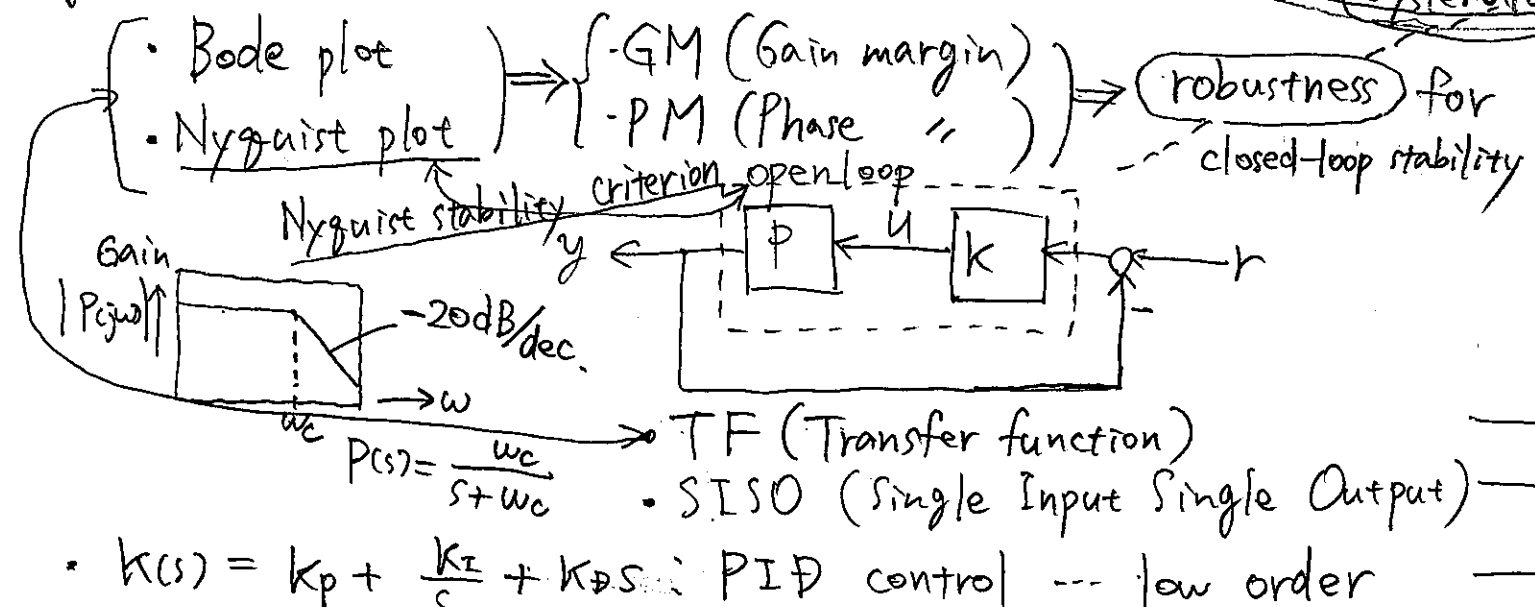 · Bode plot
· Nyquist plot
· GM (Gain margin)
· PM (Phase 〃 )
robustness for
closed-loop stability
Nyquist stability criterion
openloop
y
P
u
K
r
-
Gain
|P(jω)|
-20dB/dec.
ω
ωc
P(s) = ωc / s+ωc
· TF (Transfer function)
· SISO (Single Input Single Output)
· K(s) = Kp + KI/s + KDs : PID control --- low order